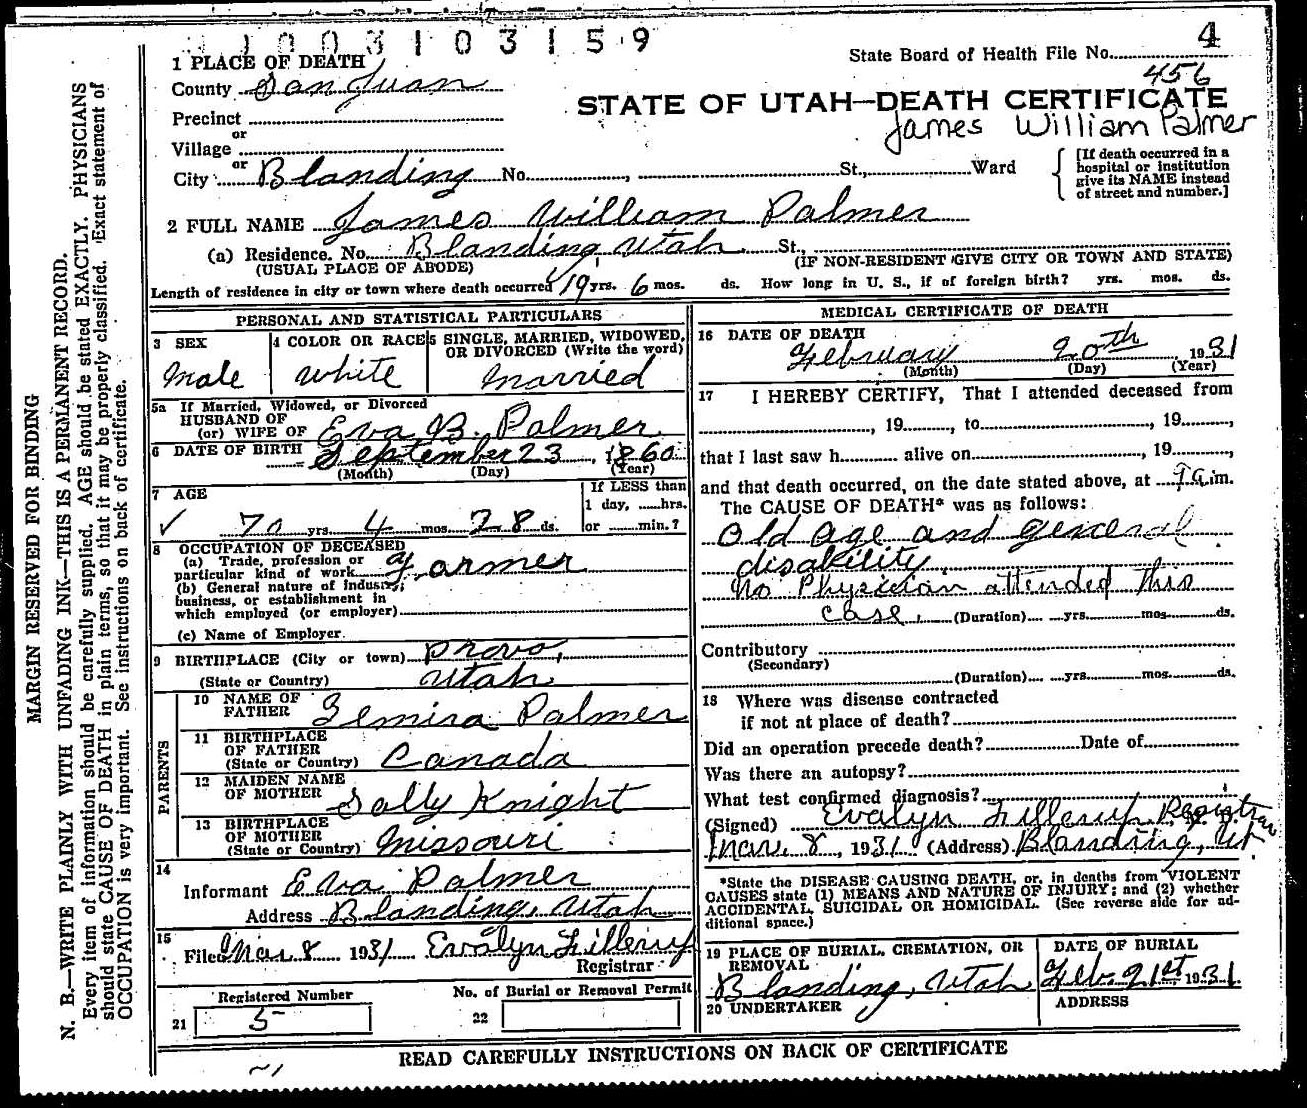 1003103159
State Board of Health File No. 4
456
STATE OF UTAH—DEATH CERTIFICATE
James William Palmer
1 PLACE OF DEATH
County San Juan
Precinct
or
Village
or
City Blanding No. , St., Ward
[If death occurred in a
hospital or institution
give its NAME instead
of street and number.]
2 FULL NAME James William Palmer
(a) Residence. No. Blanding, Utah St.,
(USUAL PLACE OF ABODE) (IF NON-RESIDENT GIVE CITY OR TOWN AND STATE)
Length of residence in city or town where death occurred 19 yrs. 6 mos. ds. How long in U. S., if of foreign birth? yrs. mos. ds.
PERSONAL AND STATISTICAL PARTICULARS
3 SEX
Male
4 COLOR OR RACE
White
5 SINGLE, MARRIED, WIDOWED,
OR DIVORCED (Write the word)
Married
5a If Married, Widowed, or Divorced
HUSBAND OF
(or) WIFE OF Eva B. Palmer
6 DATE OF BIRTH September 23, 1860
(Month) (Day) (Year)
7 AGE
✓ 70 yrs. 4 mos. 28 ds.
If LESS than
1 day, hrs.
or min.?
8 OCCUPATION OF DECEASED
(a) Trade, profession or
particular kind of work Farmer
(b) General nature of industry,
business, or establishment in
which employed (or employer)
(c) Name of Employer
9 BIRTHPLACE (City or town) Provo,
(State or Country) Utah
PARENTS
10 NAME OF
FATHER Zemira Palmer
11 BIRTHPLACE
OF FATHER
(State or Country) Canada
12 MAIDEN NAME
OF MOTHER Sally Knight
13 BIRTHPLACE
OF MOTHER
(State or Country) Missouri
14
Informant Eva Palmer
Address Blanding, Utah
15
Filed Mar 8 1931 Evalyn Fillerup
Registrar
Registered Number
21 5
No. of Burial or Removal Permit
22
MEDICAL CERTIFICATE OF DEATH
16 DATE OF DEATH
February 20th 1931
(Month) (Day) (Year)
17 I HEREBY CERTIFY, That I attended deceased from
, 19 , to , 19 ,
that I last saw h alive on , 19 ,
and that death occurred, on the date stated above, at 9 a.m.
The CAUSE OF DEATH* was as follows:
Old age and general
disability.
No Physician attended this
case. (Duration) yrs. mos. ds.
Contributory
(Secondary)
(Duration) yrs. mos. ds.
18 Where was disease contracted
if not at place of death?
Did an operation precede death? Date of
Was there an autopsy?
What test confirmed diagnosis?
(Signed) Evalyn Fillerup Registrar
Mar. 8, 1931 (Address) Blanding, Ut.
*State the DISEASE CAUSING DEATH, or, in deaths from VIOLENT
CAUSES state (1) MEANS AND NATURE OF INJURY; and (2) whether
ACCIDENTAL, SUICIDAL OR HOMICIDAL. (See reverse side for ad-
ditional space.)
19 PLACE OF BURIAL, CREMATION, OR
REMOVAL
Blanding, Utah
DATE OF BURIAL
Feb. 21st 1931
20 UNDERTAKER
ADDRESS
READ CAREFULLY INSTRUCTIONS ON BACK OF CERTIFICATE
MARGIN RESERVED FOR BINDING
N. B.—WRITE PLAINLY WITH UNFADING INK—THIS IS A PERMANENT RECORD.
Every item of information should be carefully supplied. AGE should be stated EXACTLY. PHYSICIANS
should state CAUSE OF DEATH in plain terms, so that it may be properly classified. Exact statement of
OCCUPATION is very important. See instructions on back of certificate.